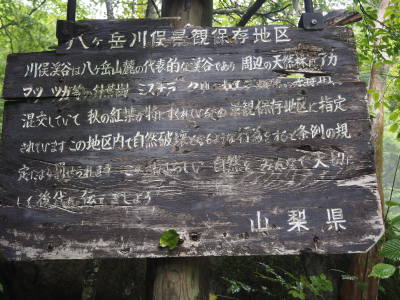 八ヶ岳川俣景観保存地区
川俣渓谷は八ヶ岳山麓の代表的な渓谷であり 周辺の天然林はアカ
マツ ツガ等の針葉樹 ミズナラ
混交していて 秋の紅葉が特にすぐれているため景観保存地区に指定
されています この地区内で自然破壊となるような行為をすると条例の規
定により罰せられます この 自然を みんなで 大切に
して 後代に 伝えましょう
山梨県